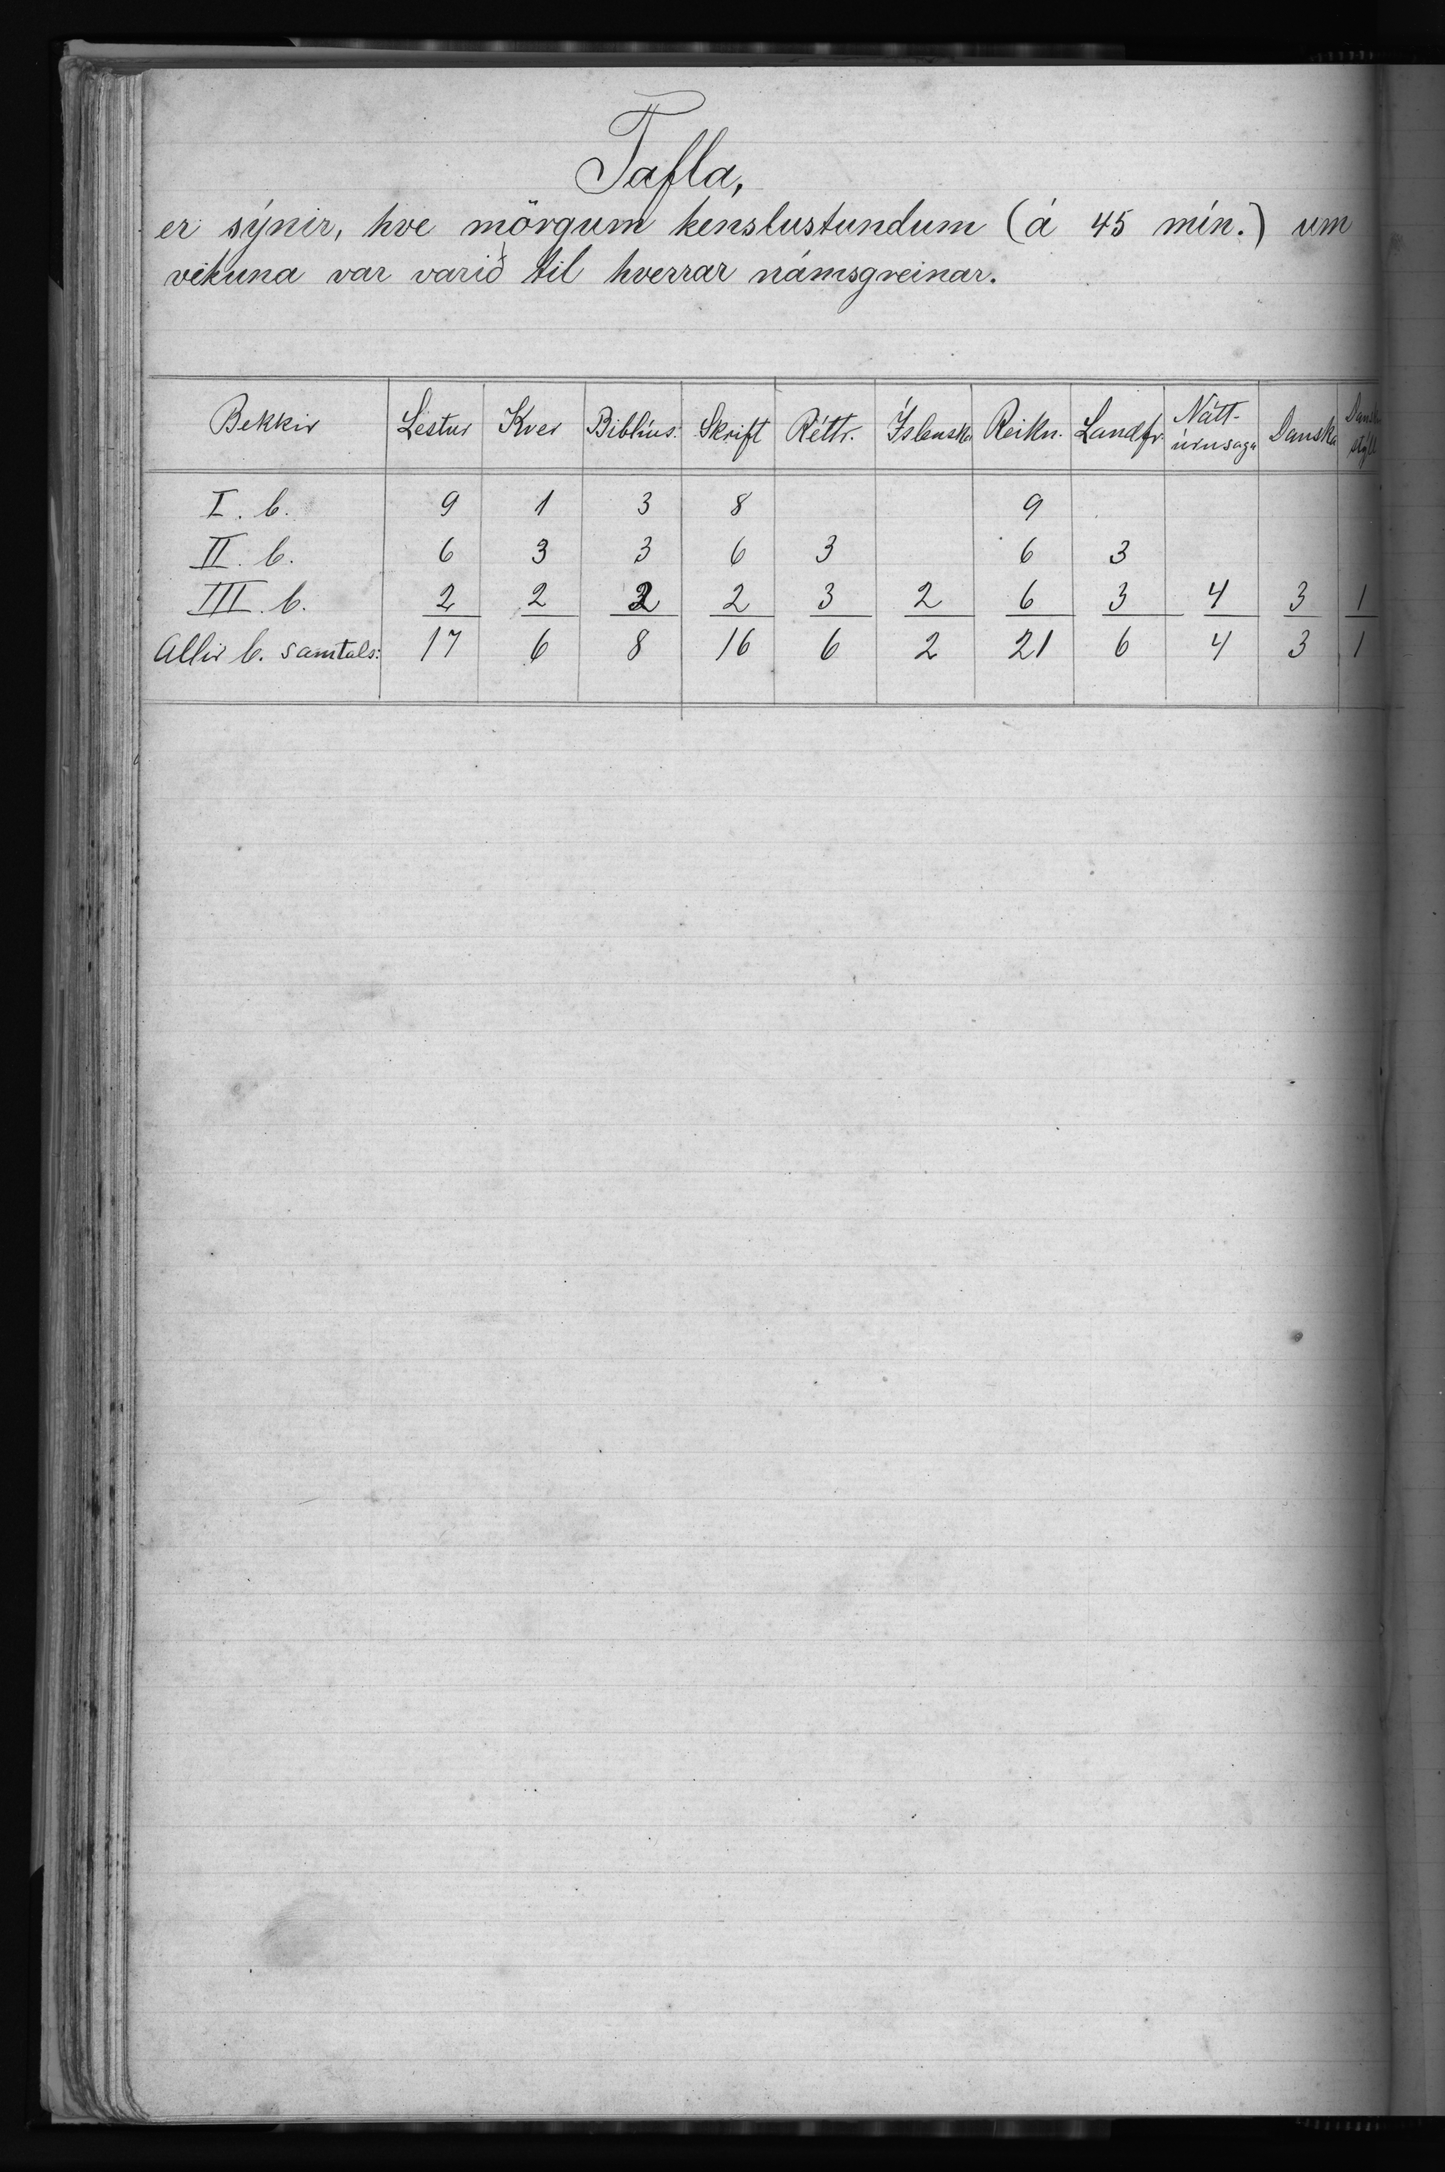 Tafla,
er sýnir, hve mörgum kenslustundum (á 45 mín.) um
vikuna var varið til hverrar námsgreinar.
Bekkir Lestur Kver Biblíus. Skrift Réttr. Íslenska Reikn. Landfr. Nátt-úrusaga Danska
I. b. 9 1 3 8 9
II. b. 6 3 3 6 3 6 3
III. b. 2 2 2 2 3 2 6 3 4 3 1
Allir b. samtals: 17 6 8 16 6 2 21 6 4 3 1